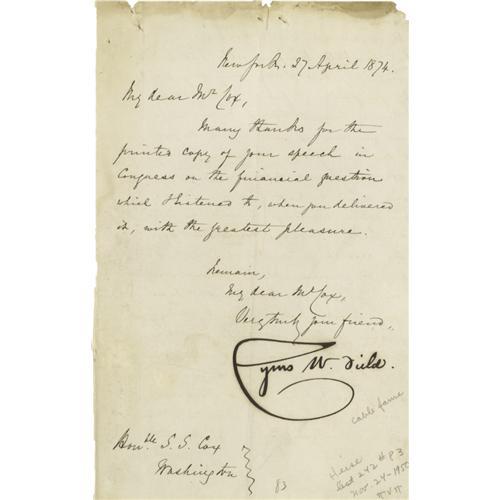 New York. 27 April 1874.
My dear Mr Cox,
Many thanks for the
printed copy of your speech in
Congress on the financial question
which I listened to, when you delivered
it, with the greatest pleasure.
I remain,
My dear Mr Cox,
Very truly your friend,
Cyrus W. Field.
Honble S. S. Cox
Washington
cable fame
83
Heise
List 242 # 83
Nov. 24-1950